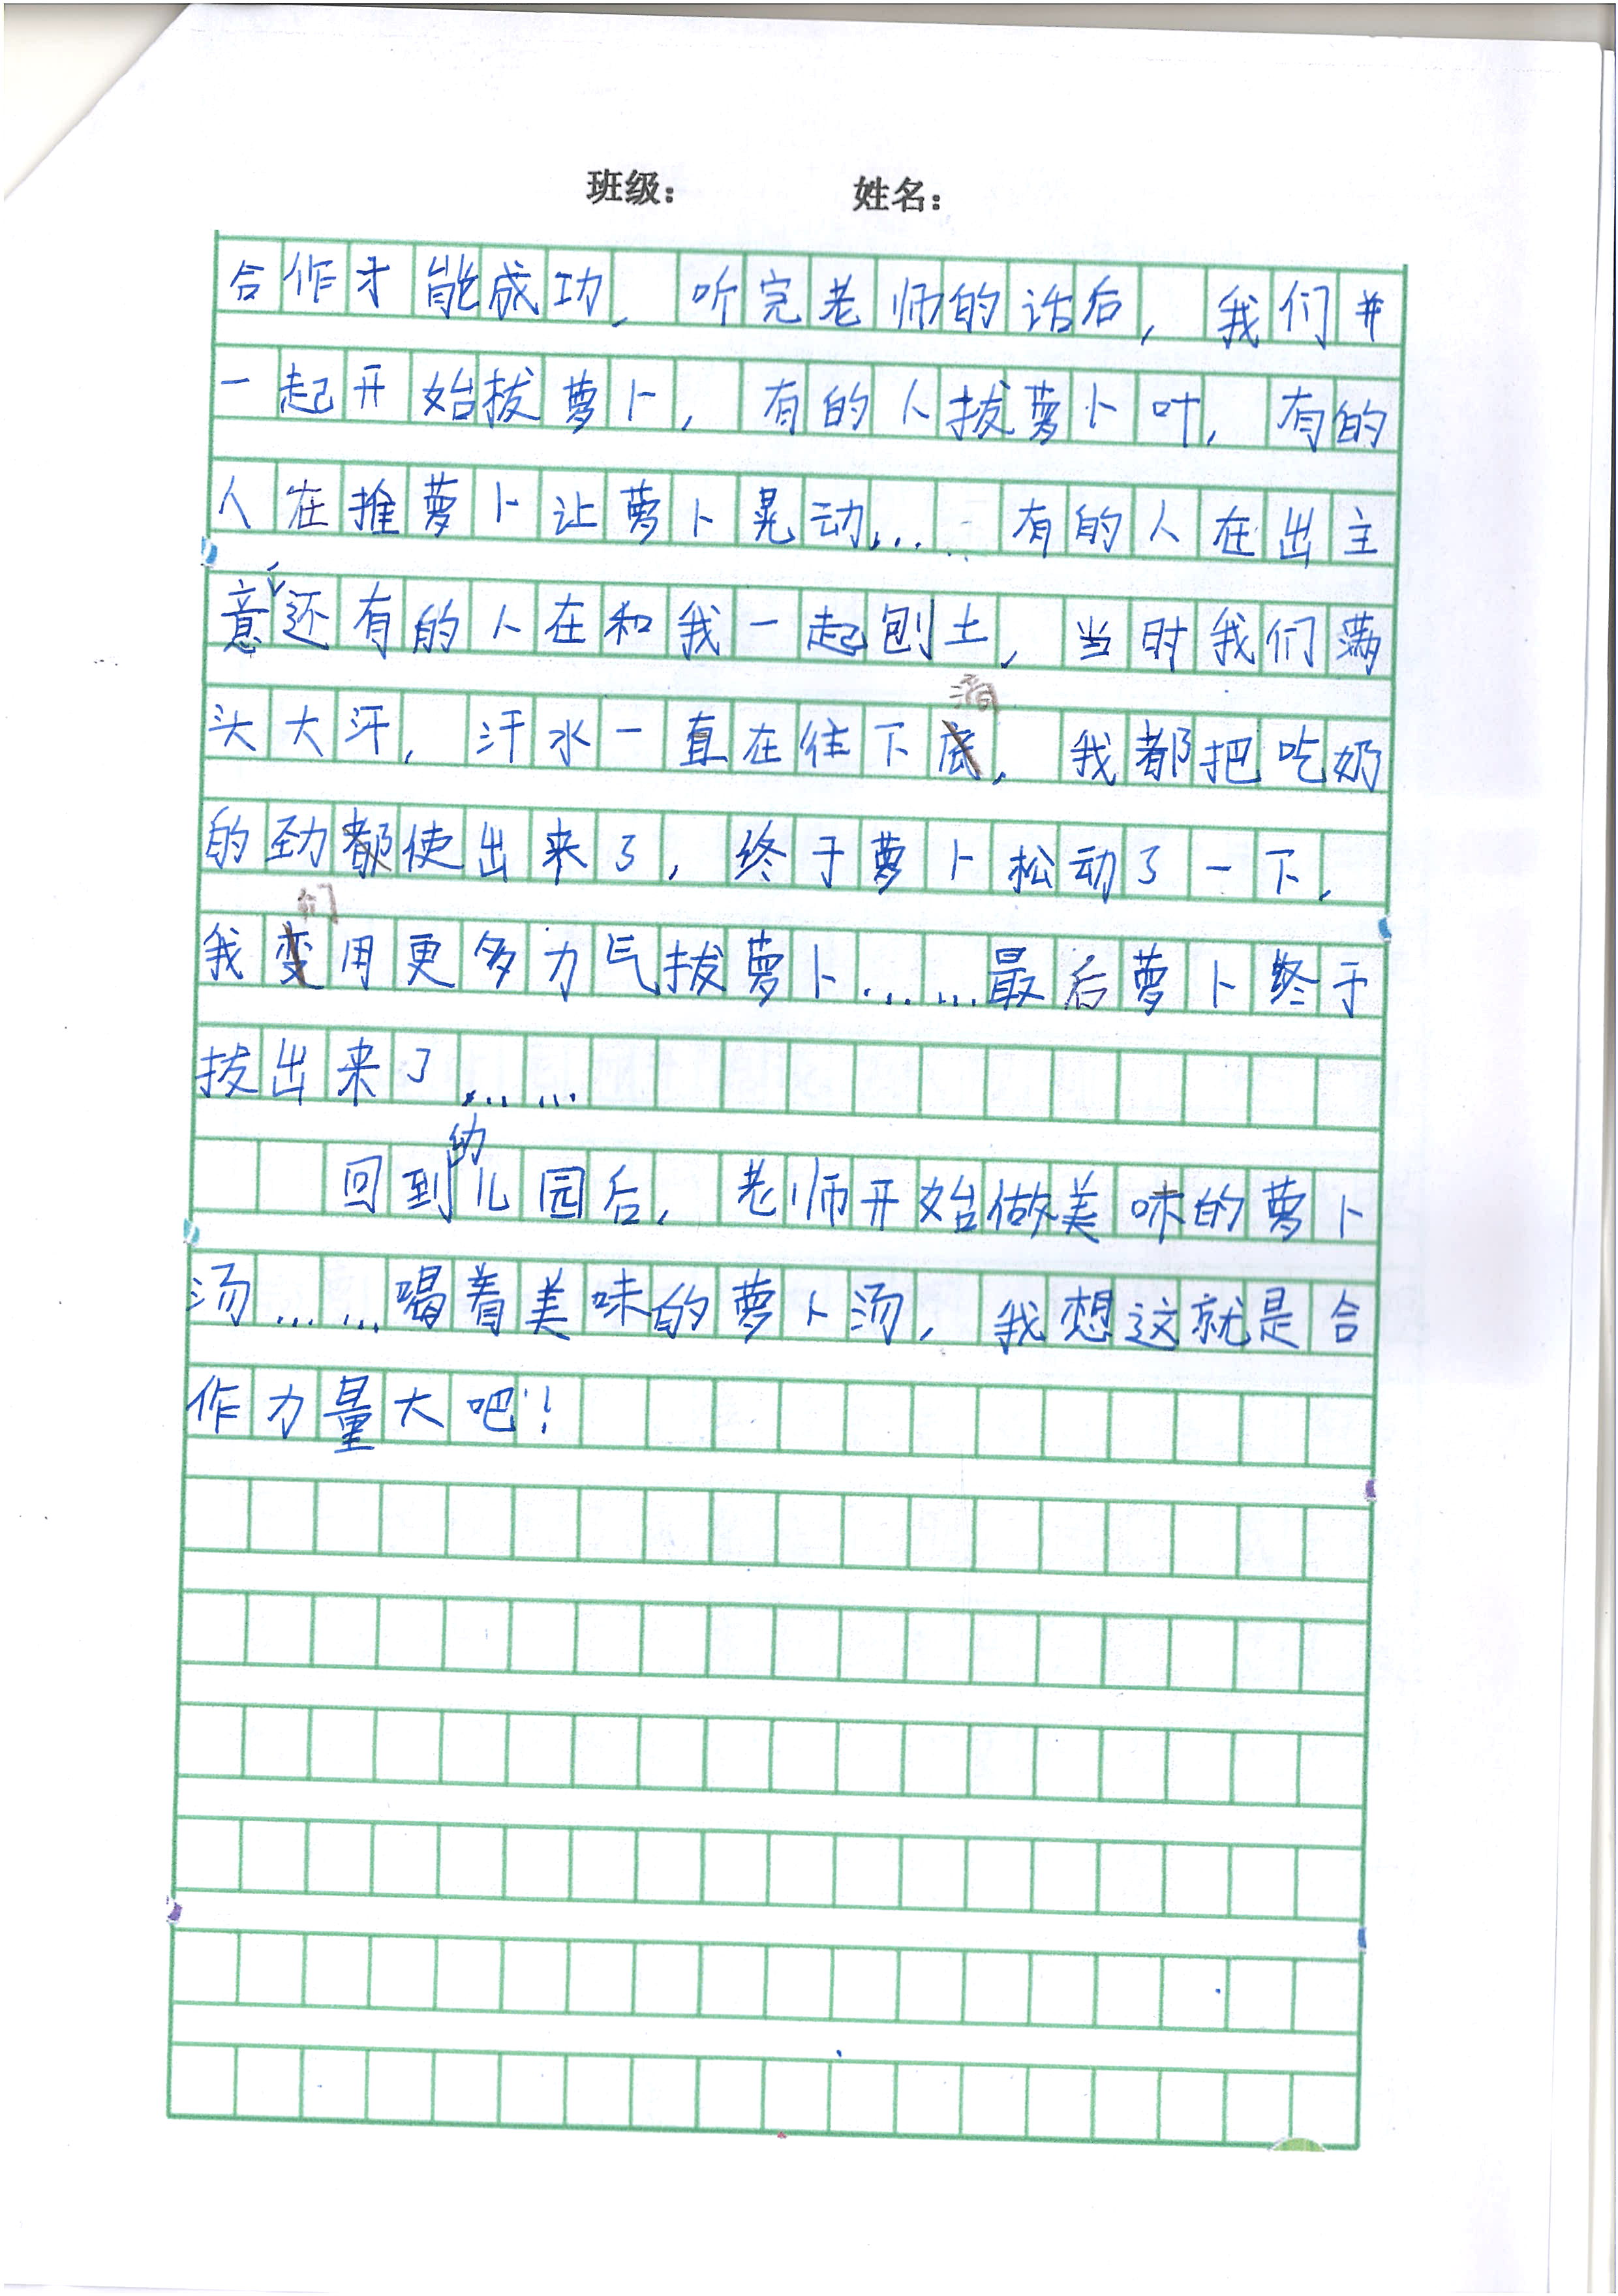 班级： 姓名：
合作才能成功，听完老师的话后，我们并
一起开始拔萝卜，有的人拔萝卜叶，有的
人在推萝卜让萝卜晃动……有的人在出主
意，还有的人在和我一起刨土，当时我们满
头大汗，汗水一直在往下滴，我都把吃奶
的劲都使出来了，终于萝卜松动了一下，
我们用更多力气拔萝卜……最后萝卜终于
拔出来了……
回到幼儿园后，老师开始做美味的萝卜
汤……喝着美味的萝卜汤，我想这就是合
作力量大吧！